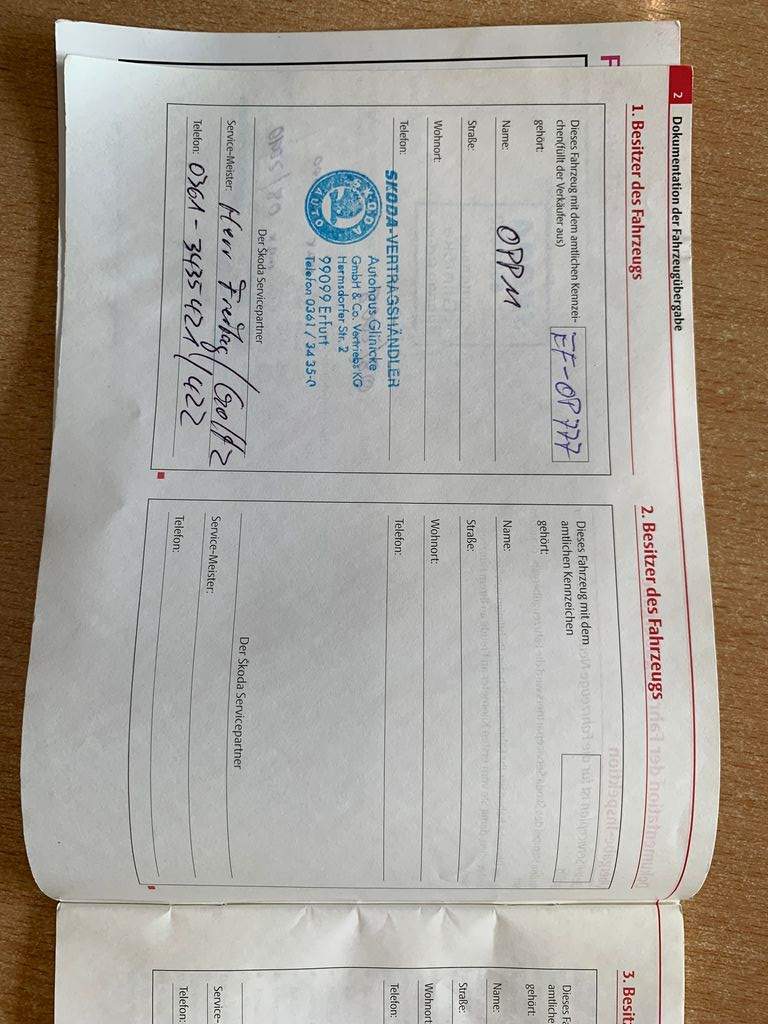 2 Dokumentation der Fahrzeugübergabe
1. Besitzer des Fahrzeugs
Dieses Fahrzeug mit dem amtlichen Kennzei-
chen(füllt der Verkäufer aus)
EF-OP777
gehört:
Name: OPPM
Straße:
Wohnort:
Telefon:
SKODA-VERTRAGSHÄNDLER
SKODA
AUTO
Autohaus Glinicke
GmbH & Co. Vertriebs KG
Hermsdorfer Str. 2
99099 Erfurt
Telefon 0361 / 34 35-0
Der Škoda Servicepartner
Service-Meister: Herr Freitag /
Telefon: 0361 - 3435 421 / 422
2. Besitzer des Fahrzeugs
Dieses Fahrzeug mit dem
amtlichen Kennzeichen
gehört:
Name:
Straße:
Wohnort:
Telefon:
Der Škoda Servicepartner
Service-Meister:
Telefon:
3. Besit
Dieses F
amtliche
gehört:
Name:
Straße:
Wohnort
Telefon:
Service-
Telefon: